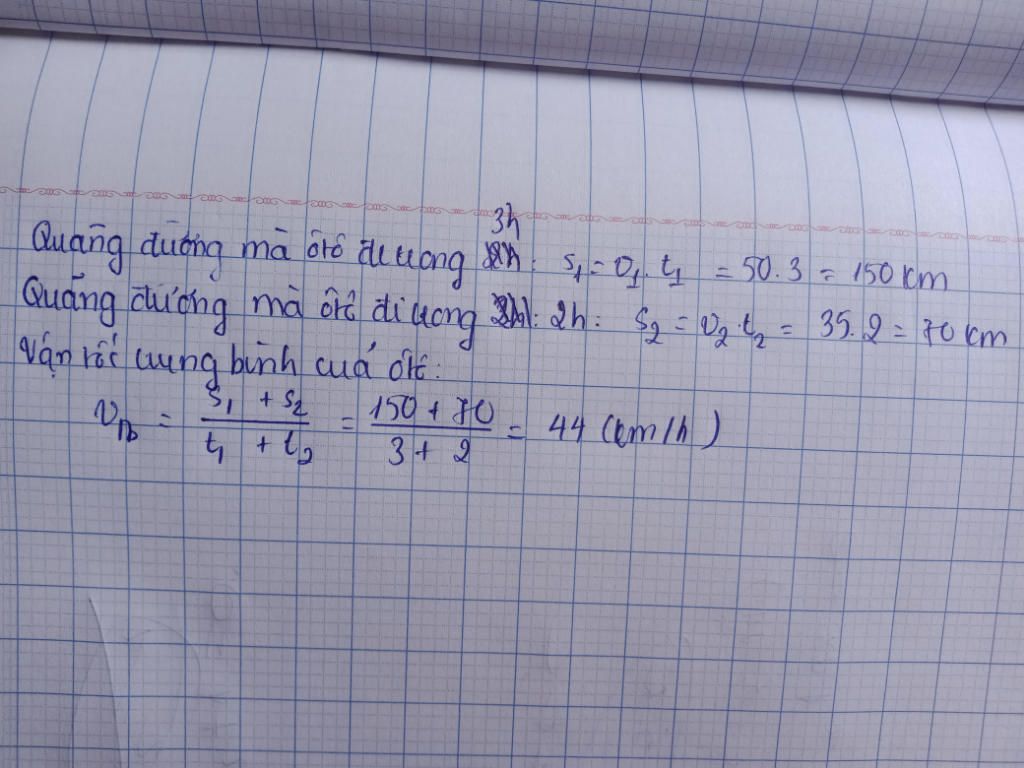 Quãng đường mà ôtô đi trong 3h: s₁ = v₁.t₁ = 50.3 = 150 km
Quãng đường mà ôtô đi trong 2h: s₂ = v₂.t₂ = 35.2 = 70 km
Vận tốc trung bình của ôtô:
v_tb = (s₁ + s₂)/(t₁ + t₂) = (150 + 70)/(3 + 2) = 44 (km/h)